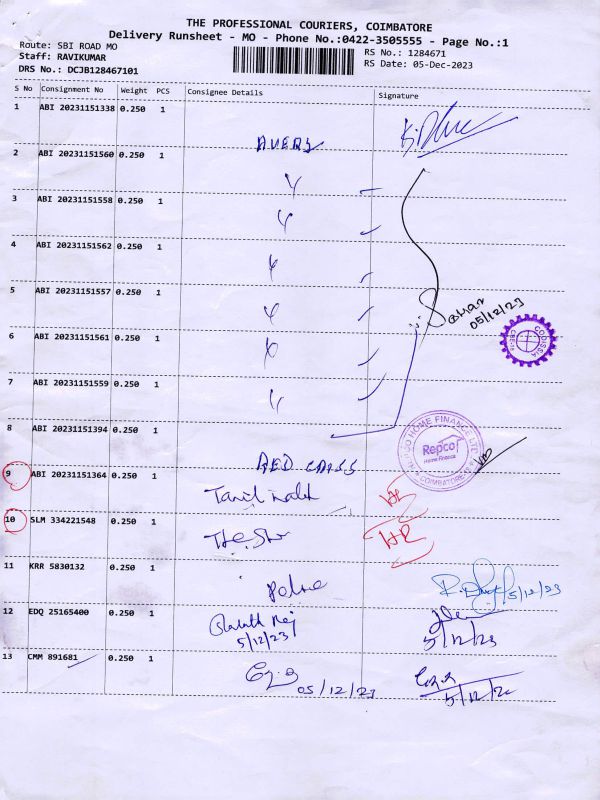 THE PROFESSIONAL COURIERS, COIMBATORE
Delivery Runsheet - MO - Phone No.:0422-3505555 - Page No.:1
Route: SBI ROAD MO
RS No.: 1284671
Staff: RAVIKUMAR
RS Date: 05-Dec-2023
DRS No.: DCJB128467101
S No Consignment No Weight PCS Consignee Details Signature
1 ABI 20231151338 0.250 1
2 ABI 20231151560 0.250 1
3 ABI 20231151558 0.250 1
4 ABI 20231151562 0.250 1
5 ABI 20231151557 0.250 1
05/12/23
CODISSIA
6 ABI 20231151561 0.250 1
7 ABI 20231151559 0.250 1
8 ABI 20231151394 0.250 1
REPCO HOME FINANCE LTD
Repco
Home Finance
COIMBATORE
RED CROSS
9 ABI 20231151364 0.250 1
10 SLM 334221548 0.250 1
11 KRR 5830132 0.250 1
5/12/23
12 EDQ 25165400 0.250 1
5/12/23 5/12/23
13 CMM 891681 0.250 1
05/12/23